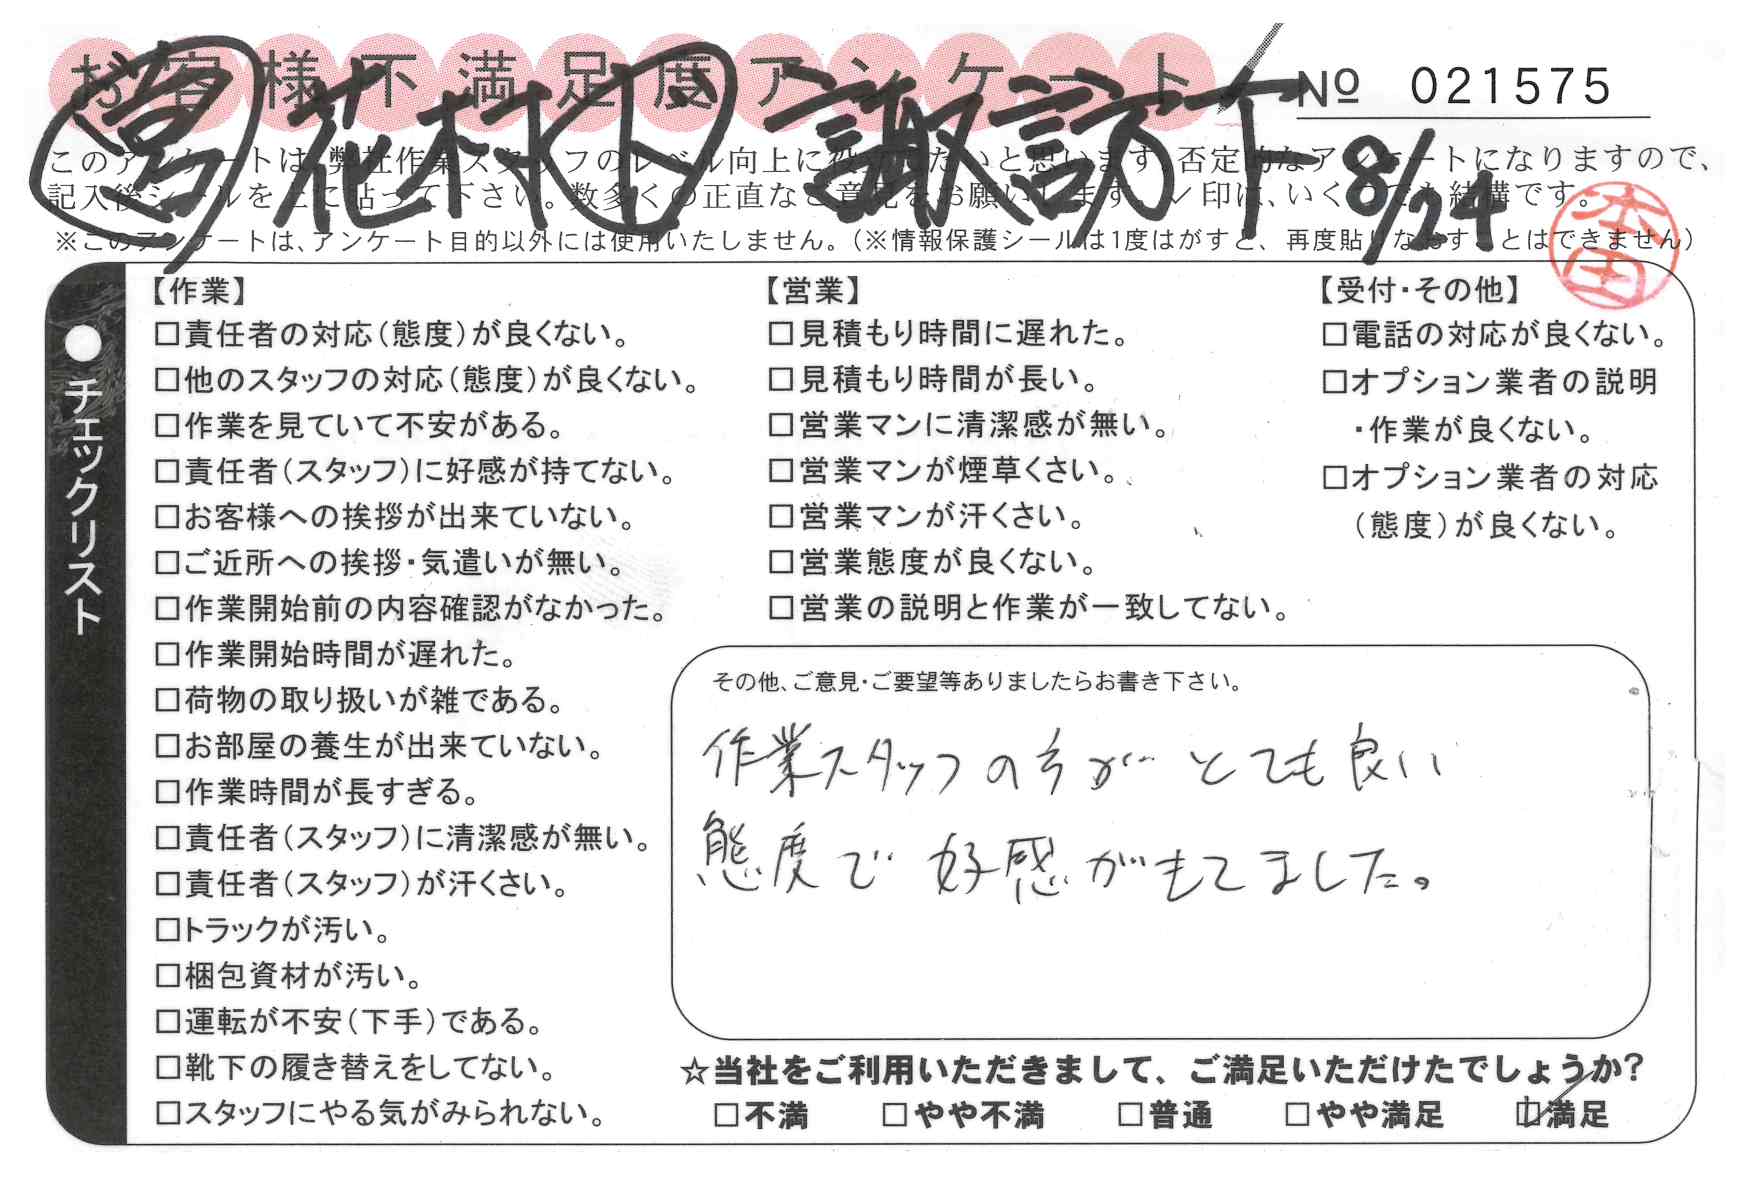 お客様不満足度アンケート
No 021575
営 花村 下 諏訪下 8/24
このアンケートは、弊社作業スタッフのレベル向上に役立てたいと思います。否定的なアンケートになりますので、
記入後シールを上に貼って下さい。数多くの正直なご意見をお願いします。✓印は、いくつでも結構です。
※このアンケートは、アンケート目的以外には使用いたしません。(※情報保護シールは1度はがすと、再度貼りなおすことはできません)
本田
●チェックリスト
【作業】
□責任者の対応(態度)が良くない。
□他のスタッフの対応(態度)が良くない。
□作業を見ていて不安がある。
□責任者(スタッフ)に好感が持てない。
□お客様への挨拶が出来ていない。
□ご近所への挨拶・気遣いが無い。
□作業開始前の内容確認がなかった。
□作業開始時間が遅れた。
□荷物の取り扱いが雑である。
□お部屋の養生が出来ていない。
□作業時間が長すぎる。
□責任者(スタッフ)に清潔感が無い。
□責任者(スタッフ)が汗くさい。
□トラックが汚い。
□梱包資材が汚い。
□運転が不安(下手)である。
□靴下の履き替えをしてない。
□スタッフにやる気がみられない。
【営業】
□見積もり時間に遅れた。
□見積もり時間が長い。
□営業マンに清潔感が無い。
□営業マンが煙草くさい。
□営業マンが汗くさい。
□営業態度が良くない。
□営業の説明と作業が一致してない。
【受付・その他】
□電話の対応が良くない。
□オプション業者の説明
・作業が良くない。
□オプション業者の対応
(態度)が良くない。
その他、ご意見・ご要望等ありましたらお書き下さい。
作業スタッフの方がとても良い
態度で好感がもてました。
☆当社をご利用いただきまして、ご満足いただけたでしょうか?
□不満 □やや不満 □普通 □やや満足 ☑満足